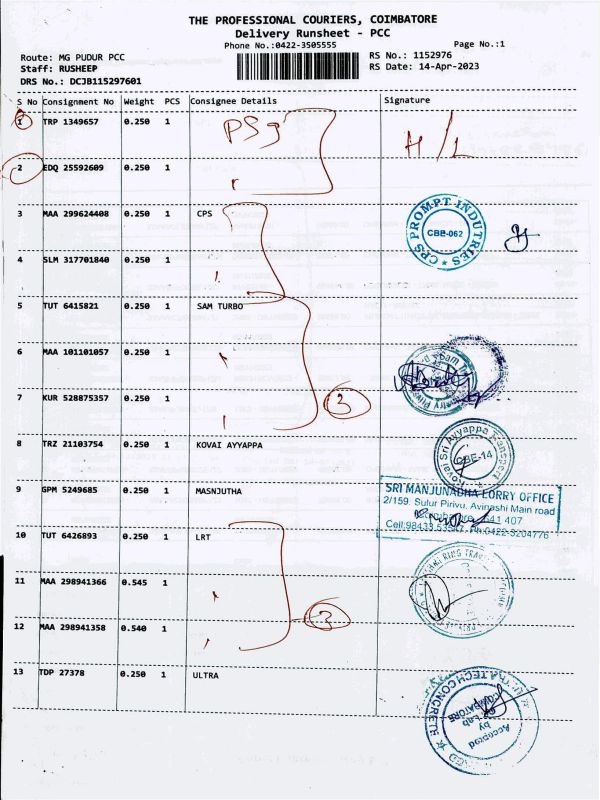 THE PROFESSIONAL COURIERS, COIMBATORE
Delivery Runsheet - PCC
Phone No.:0422-3505555
Page No.:1
Route: MG PUDUR PCC
RS No.: 1152976
Staff: RUSHEEP
RS Date: 14-Apr-2023
DRS No.: DCJB115297601
S No Consignment No Weight PCS Consignee Details Signature
1 TRP 1349657 0.250 1 PSG H/L
2 EDQ 25592609 0.250 1
3 MAA 299624408 0.250 1 CPS
CPS PROMPT INDUTRIES
CBE-062
4 SLM 317701840 0.250 1
5 TUT 6415821 0.250 1 SAM TURBO
6 MAA 101101057 0.250 1
7 KUR 528875357 0.250 1
3
8 TRZ 21103754 0.250 1 KOVAI AYYAPPA
Kovai Sri Ayyappa Transport
CBE-14
9 GPM 5249685 0.250 1 MASNJUTHA
SRI MANJUNADHA LORRY OFFICE
2/159. Sulur Pirivu, Avinashi Main road
641 407
Cell:98433 Ph:0422-3204776
10 TUT 6426893 0.250 1 LRT
11 MAA 298941366 0.545 1
12 MAA 298941358 0.540 1
3
13 TDP 27378 0.250 1 ULTRA
ULTRATECH CONCRETE
COIMBATORE
Lab
by
Accepted